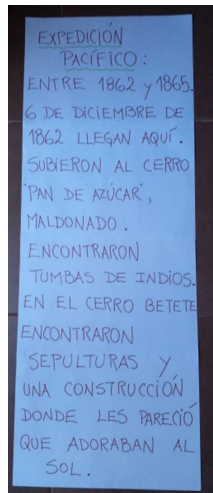 EXPEDICIÓN
PACÍFICO:
ENTRE 1862 y 1865.
6 DE DICIEMBRE DE
1862 LLEGAN AQUÍ.
SUBIERON AL CERRO
"PAN DE AZÚCAR",
MALDONADO.
ENCONTRARON
TUMBAS DE INDIOS.
EN EL CERRO BETETE
ENCONTRARON
SEPULTURAS Y
UNA CONSTRUCCIÓN
DONDE LES PARECIÓ
QUE ADORABAN AL
SOL.